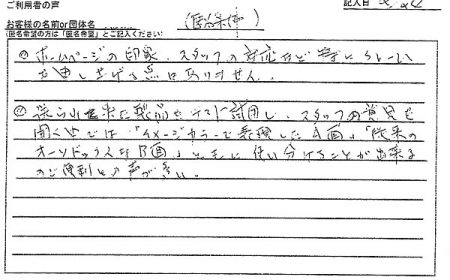 ご利用者の声
記入日
お客様の名前or団体名
(匿名希望)
(匿名希望の方は「匿名希望」とご記入ください)
◎ホームページの印象、スタッフの対応など特にクレーム
を申し上げる点はありません。
テストに試用し、スタッフの意見を
聞く中では「イメージカラーで表現したA面」「従来の
オーソドックスなB面」と 使い分けることが出来る
ので便利との声が多い。